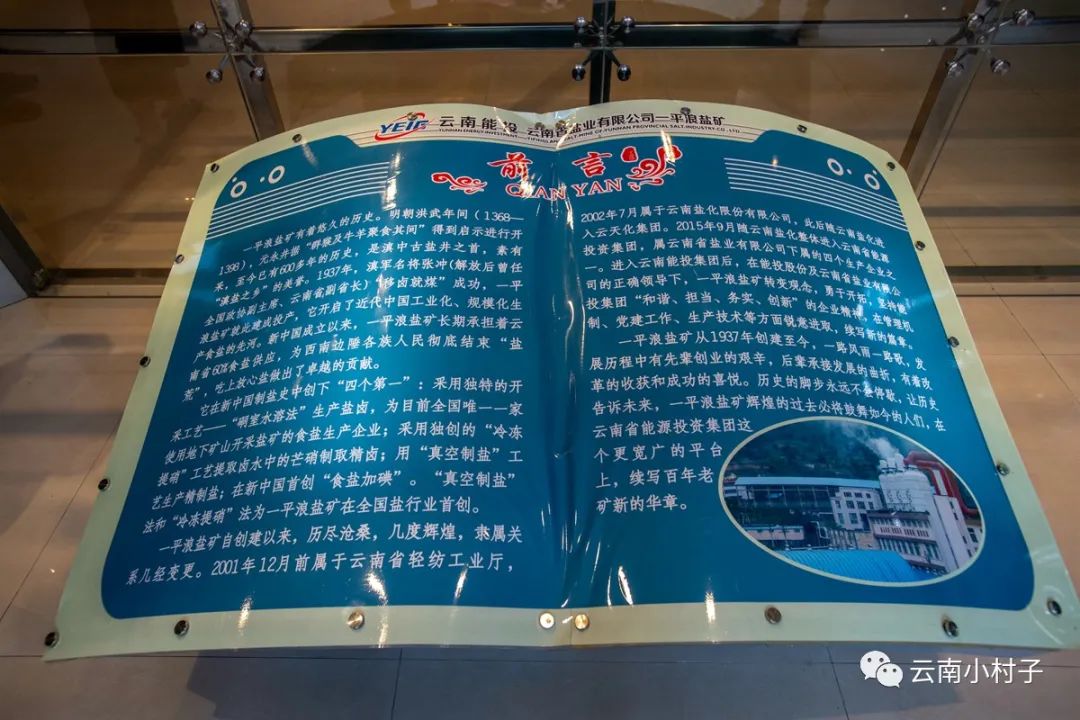 YEIG 云南能投 云南省盐业有限公司一平浪盐矿
YUNNAN ENERGY INVESTMENT
YIPINGLANG SALT MINE OF YUNNAN PROVINCIAL SALT INDUSTRY CO., LTD
前言
QIAN YAN
一平浪盐矿有着悠久的历史。明朝洪武年间（1368—
1398），元永井据“群猴及牛羊聚食其间”得到启示进行开
采，至今已有600多年的历史，是滇中古盐井之首，素有
“滇盐之乡”的美誉。1937年，滇军名将张冲(解放后曾任
全国政协副主席、云南省副省长)“移卤就煤”成功，一平
浪盐矿就此建成投产，它开启了近代中国工业化、规模化生
产食盐的先河。新中国成立以来，一平浪盐矿长期承担着云
南省60%食盐供应，为西南边陲各族人民彻底结束“盐
荒”，吃上放心盐做出了卓越的贡献。
它在新中国制盐史中创下“四个第一”：采用独特的开
采工艺——“硐室水溶法”生产盐卤，为目前全国唯一一家
使用地下矿山开采盐矿的食盐生产企业；采用独创的“冷冻
提硝”工艺提取卤水中的芒硝制取精卤；用“真空制盐”工
艺生产精制盐；在新中国首创“食盐加碘”。“真空制盐”
法和“冷冻提硝”法为一平浪盐矿在全国盐行业首创。
一平浪盐矿自创建以来，历尽沧桑，几度辉煌，隶属关
系几经变更。2001年12月前属于云南省轻纺工业厅，
2002年7月属于云南盐化限份有限公司，此后随云南盐化进
入云天化集团。2015年9月随云南盐化整体进入云南省能源
投资集团，属云南省盐业有限公司下属的四个生产企业之
一。进入云南能投集团后，在能投股份及云南省盐业有限公
司的正确领导下，一平浪盐矿转变观念，勇于开拓，坚持能
投集团“和谐、担当、务实、创新”的企业精神，在管理机
制、党建工作、生产技术等方面锐意进取，续写新的篇章。
一平浪盐矿从1937年创建至今，一路风雨一路歌，发
展历程中有先辈创业的艰辛，后辈承接发展的曲折，有着改
革的收获和成功的喜悦。历史的脚步永远不要停歇，让历史
告诉未来，一平浪盐矿辉煌的过去必将鼓舞如今的人们，在
云南省能源投资集团这
个更宽广的平台
上，续写百年老
矿新的华章。
云南小村子